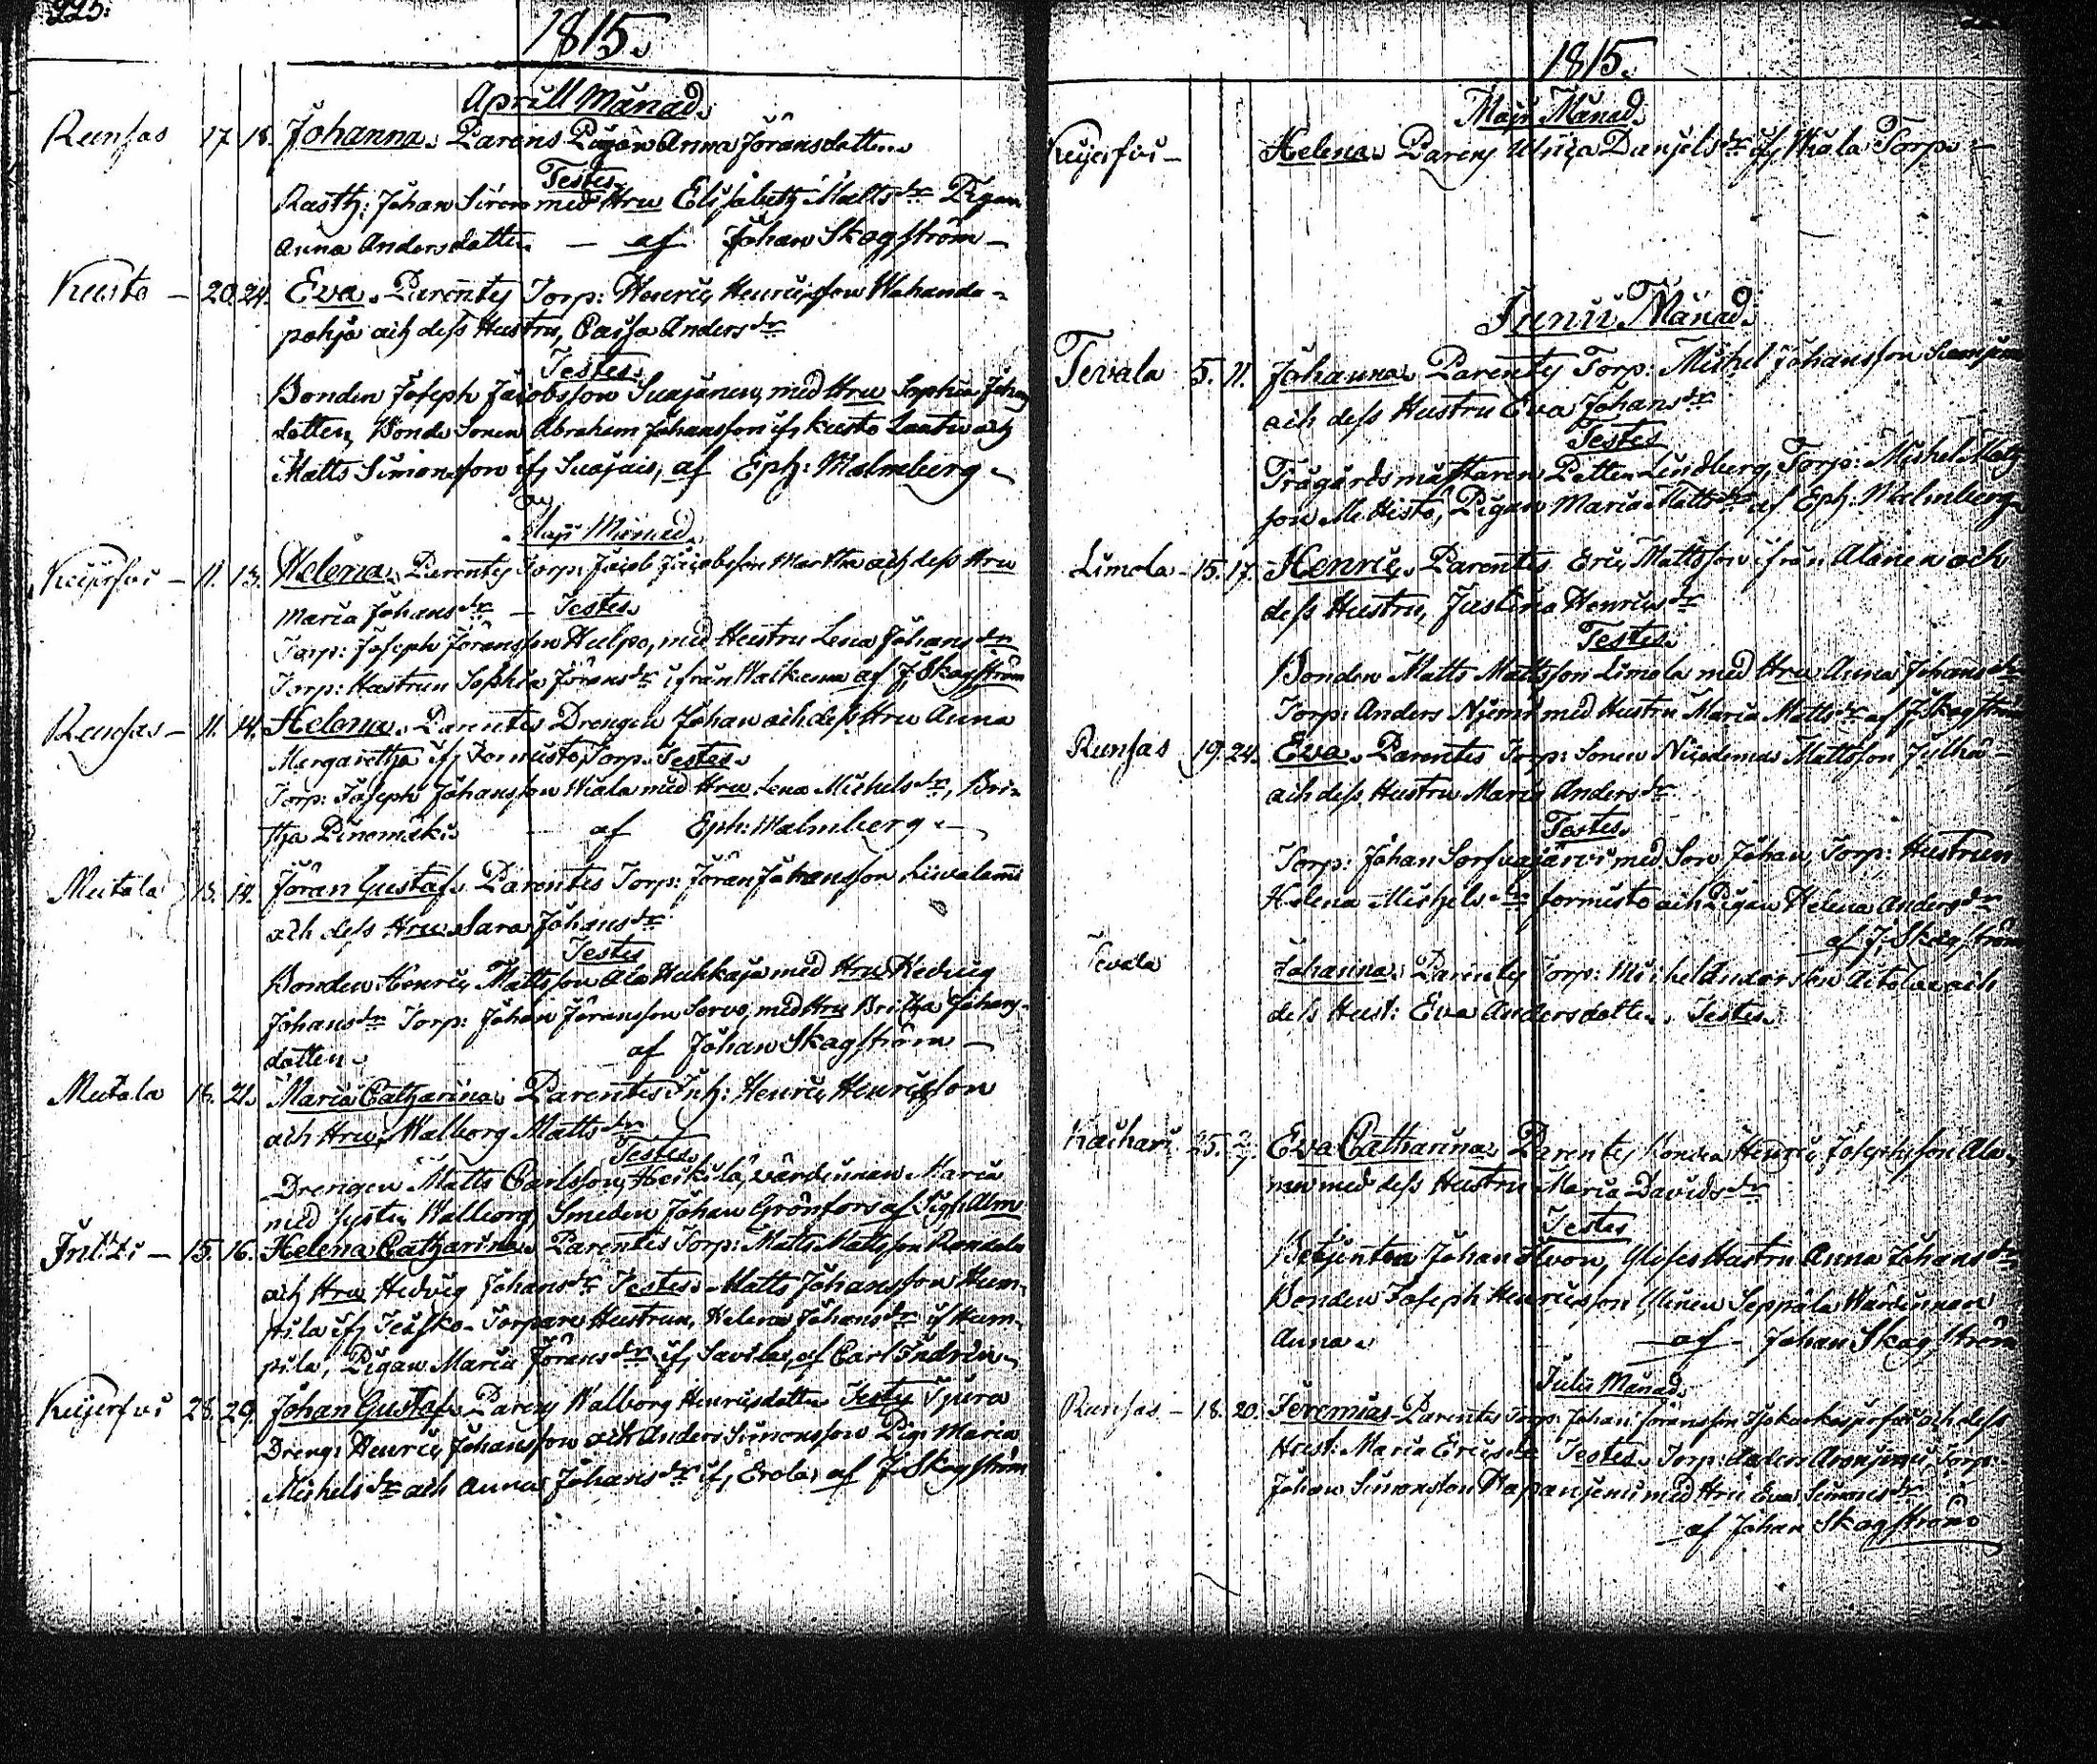 225.
1815.
Aprill Månad.
Runsas 17 18. Johanna. Parens Pigan Anna Jöransdotter.
Testes.
Rusth: Johan Sirén med Hru Elisabeth Matts dr Pigan
Anna Andersdotter — af Johan Skogström —
Kusto — 20. 24. Eva. Parentes Torp: Henric Henricsson Wahanda-
pohja och dess Hustru, Caisa Anders dr
Testes.
Bonden Joseph Jacobsson Suajärvi, med Hru Sophia Johans
dotter, Bonde Sonen Abraham Johansson if. Kusto
Matts Simonsson if. Suojais, af Eph: Malmberg
Maji Månad.
— 11. 13. Helena. Parentes Torp: Jacob Jacobsson och dess Hru
Maria Johans dr — Testes
Torp: Joseph Jöransson Hulpo, med Hustru Lena Johans dr
Torp: Hustrun Sophia Jörans dr ifrån af J. Skogström
Runsas — 11. 14. Helena. Parentes Drengen Johan och dess Hru Anna
Margaretha if. Tormisto Torp. Testes.
Torp: Joseph Johansson Wiala med Hru Lena Michels dr, Bri-
tha Pinomäki. af Eph: Malmberg. —
Mutala 13. 14. Jöran Gustaf. Parentes Torp: Jöran Johansson Liwalammi
och dess Hru Sara Johans dr
Testes
Bonden Henric Mattsson Ala Huhkaja med Hru Hedvig
Johans dr Torp: Johan Jöransson Sorvo, med Hru Britha Johans-
dotter. af Johan Skogström —
Mutala 18. 21. Maria Catharina. Parentes Inh: Henric Henricsson
och Hru Walborg Matts dr
Testes
Drengen Matts Carlsson, Heikkilä, värdinnan Maria
med syster Walborg, Smeden Johan Grönfors af Sigf. Alm
— 15. 16. Helena Catharina. Parentes Torp: Matts Mattsson Randala
och Hru Hedvig Johans dr Testes. Matts Johansson Hum-
pila if. Teisko. Torpare Hustrun, Helena Johans dr if Hum-
pila, Pigan Maria Jörans dr if. Savila, af Carl Indrén
28. 29. Johan Gustaf. Parens Walborg Henricsdotter Testes
Dreng: Henric Johansson och Anders Simonsson Pig: Maria
Michels dr och Anna Johans dr if. Erola, af J. Skogström
1815.
Maji Månad.
Helena. Parens Ulrica Danjels dr if. Wiala Torp.
Junii Månad.
Tevala 5. 11. Johanna. Parentes Torp: Michel Johansson
och dess Hustru Eva Johans dr
Testes
Trägårdsmästaren Petter Lindberg, Torp: Michel Mats
son Metistö, Pigan Maria Matts dr af Eph: Malmberg
Limola 15. 17. Henric. Parentes Eric Mattsson ifrån Alanen och
dess Hustru, Justina Henrics dr
Testes.
Bonden Matts Mattsson Limola med Hru Anna Johans dr
Torp: Anders Njemi med Hustru Maria Matts dr af J. Skogström
Runsas 19. 24. Eva. Parentes Torp: Sonen Nicodemus Mattsson Jylhä —
och dess Hustru Maria Anders dr
Testes.
Torp: Johan Sorsuajärvi med Son Johan, Torp: Hustrun
Helena Michels dr Tormisto och Pigan Helena Anders dr
af J. Skogström
Tevala Johanna. Parentes Torp: Michel Andersson Aitolax och
dess Hust: Eva Andersdotter. Testes.
Kaihari 25. 2/7 Eva Catharina. Parentes Bonden Henric Josephsson Ala-
nen med dess Hustru Maria Davids dr
Testes
Betjenten Johan Hvon, Hustru Anna Johans dr
Bonden Joseph Henricsson Ylinen Seppälä Wärdinnan
Anna. af Johan Skogström
Julii Månad.
Runsas — 18. 20. Jeremias. Parentes Torp: Johan Jöransson och dess
Hust: Maria Erics dr Testes. Torp: Anders Aronjemi, Torp:
Johan Simonsson Hapanjemi med Hru Eva Simons dr
af Johan Skogström